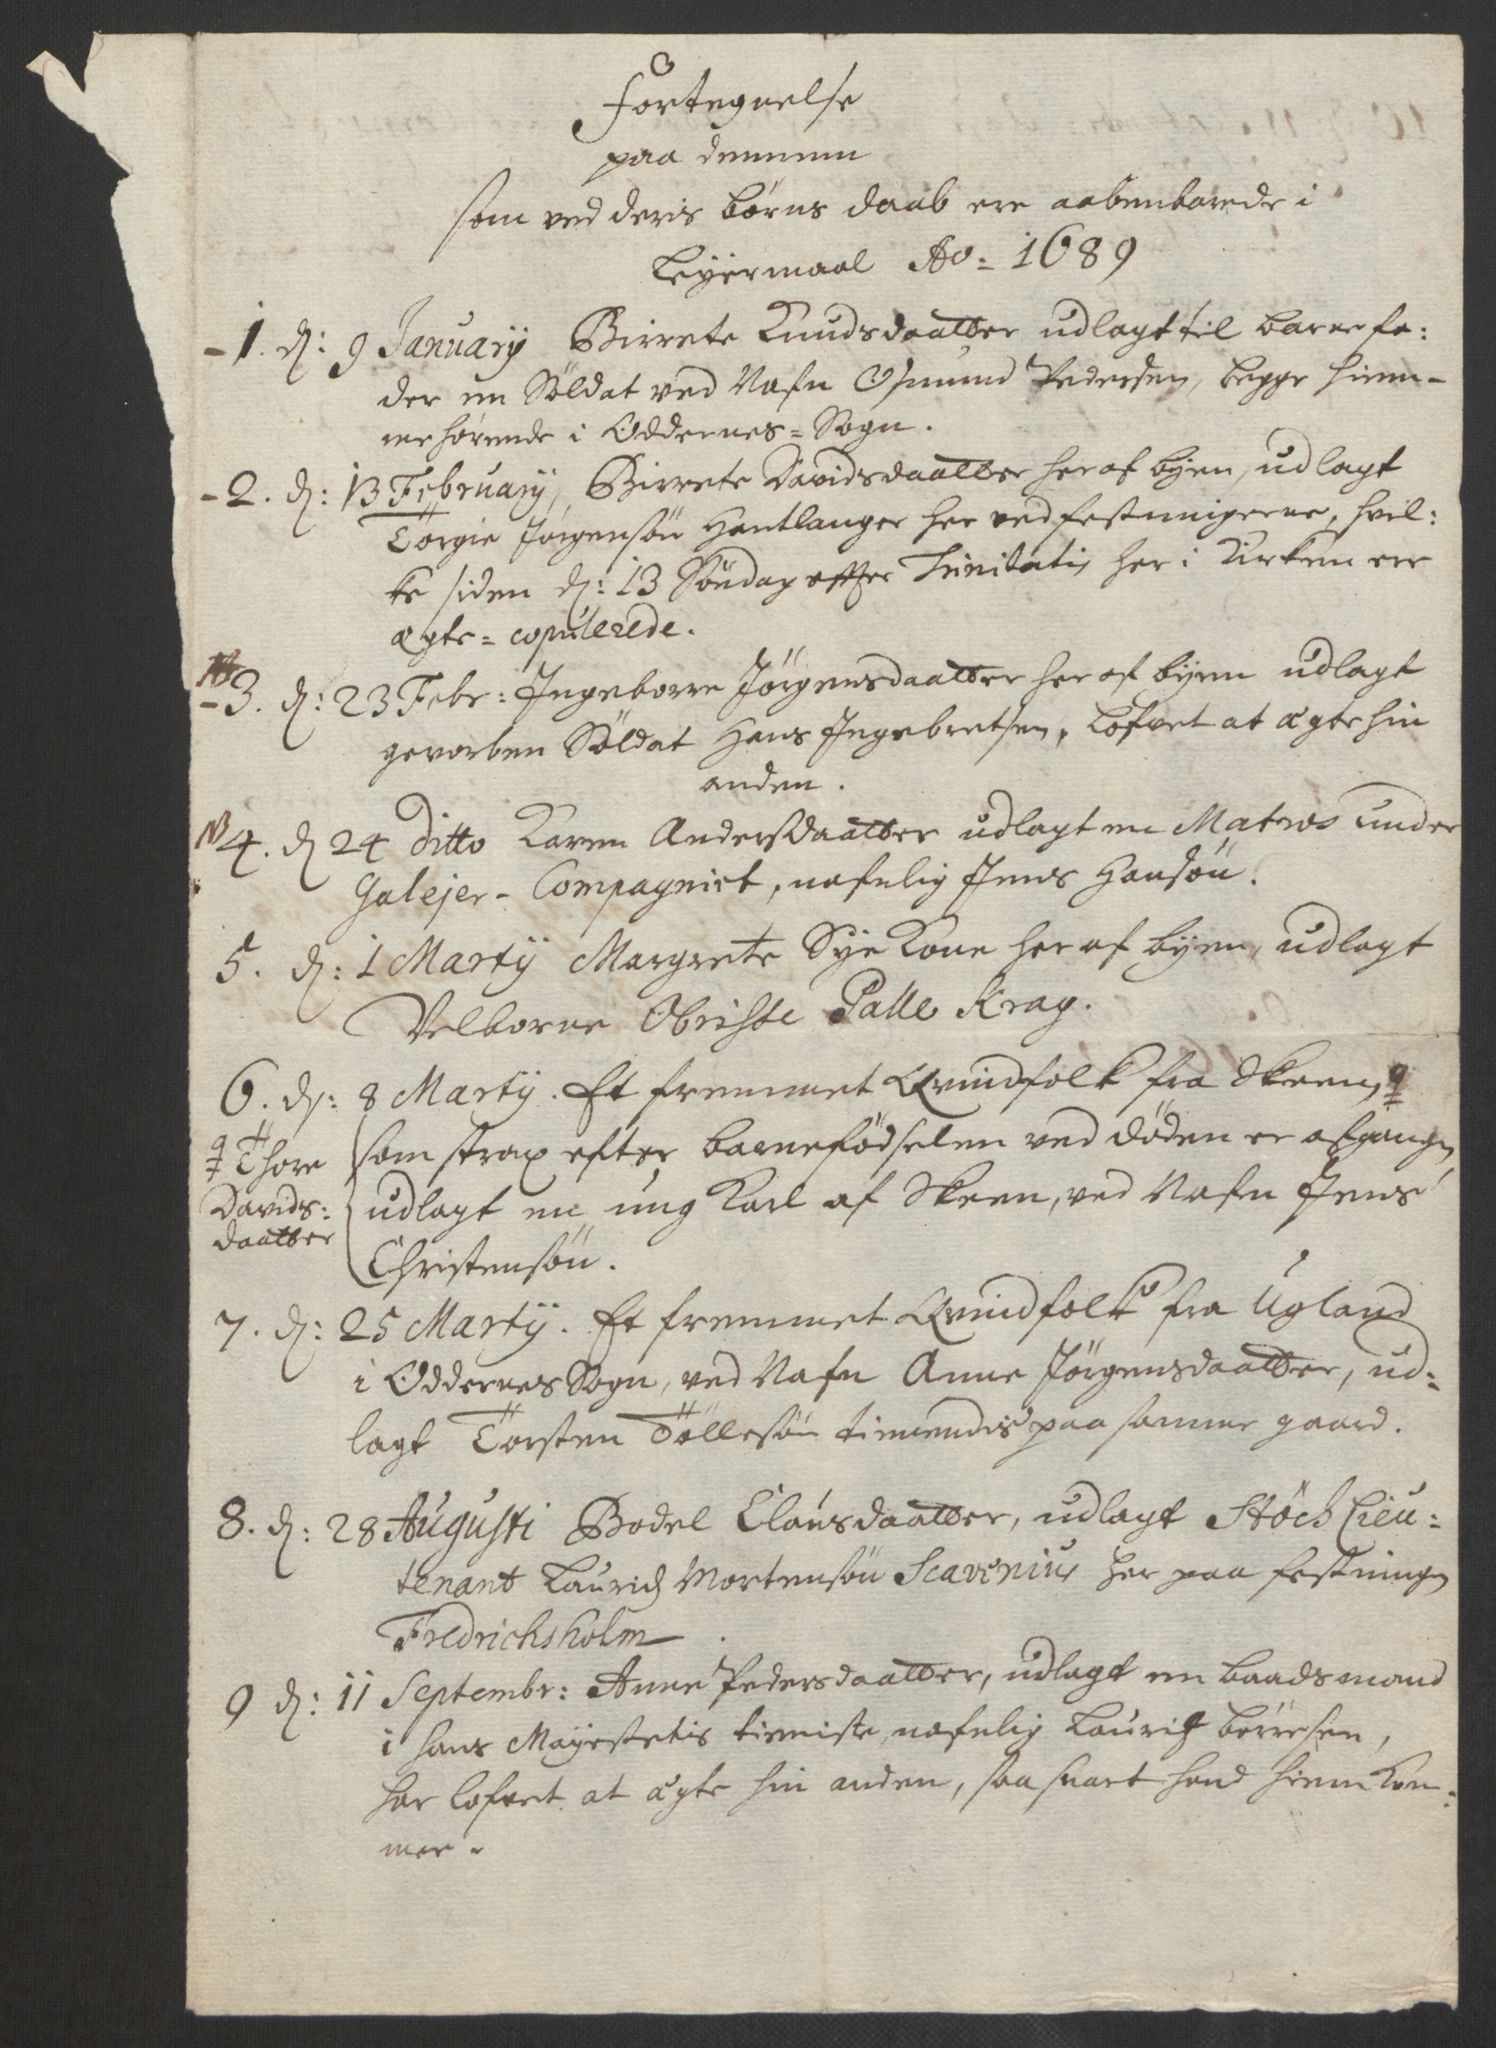 Fortegnelse
paa dennem
som ved deris børns daab ere aabenbarede i
Leyermaal Ao= 1689
-1. d: 9 Januarij Birrete Knudsdaatter udlagt til barnefa:
der en Söldat ved Nafn Osmund Pedersen, begge hiem-
mehørende i Oddernes=Sogn.
-2. d: 13 February, Birrete Davidsdaatter her af byen, udlagt
Törgie Jörgensön Hantlanger her ved festningerne, hvil:
ke siden d: 13 Söndag effter Trinitatis her i Kirken ere
ægte=copulerede.
NB
-3. d: 23 Febr: Ingeborre Jörgensdaatter her af byen udlagt
gevorben Söldat Hans Ingebretsen, lofvet at ægte hin
anden.
NB 4. d 24 ditto Karen Andersdaatter udlagt en Matros under
Galejer-Compagniet, nafnlig Jens Hansön.
5. d: 1 Martij Margrete Sye Kone her af byen, udlagt
Velborne Obriste Palle Krag.
6. d: 8 Martij. Et fremmet Qvindfolk fra Skeen,
Thore
Davids:
daatter
som strax efter barnefödselen ved döden er afgangen
udlagt en ung Karl af Skeen, ved Nafn Jens
Christensön.
7. d: 25 Martij. Et fremmet Qvindfolk fra Ugland
i Oddernes Sogn, ved Nafn Anne Jörgensdaatter, ud=
lagt Törsten Töllesön tienendis paa samme gaard.
8. d: 28 Augusti Bodel Clausdaatter, udlagt Stöch Lieu:
tenant Laurids Mortensön Scavenius her paa festningen
Fredrichsholm.
9 d: 11 Septembr: Anne Pedersdaatter, udlagt en baadsmand
i hans Mayestetis tieniste, nafnlig Laurids börresen,
har lofvet at ægte hin anden, saa snart hand hiem kom:
mer.